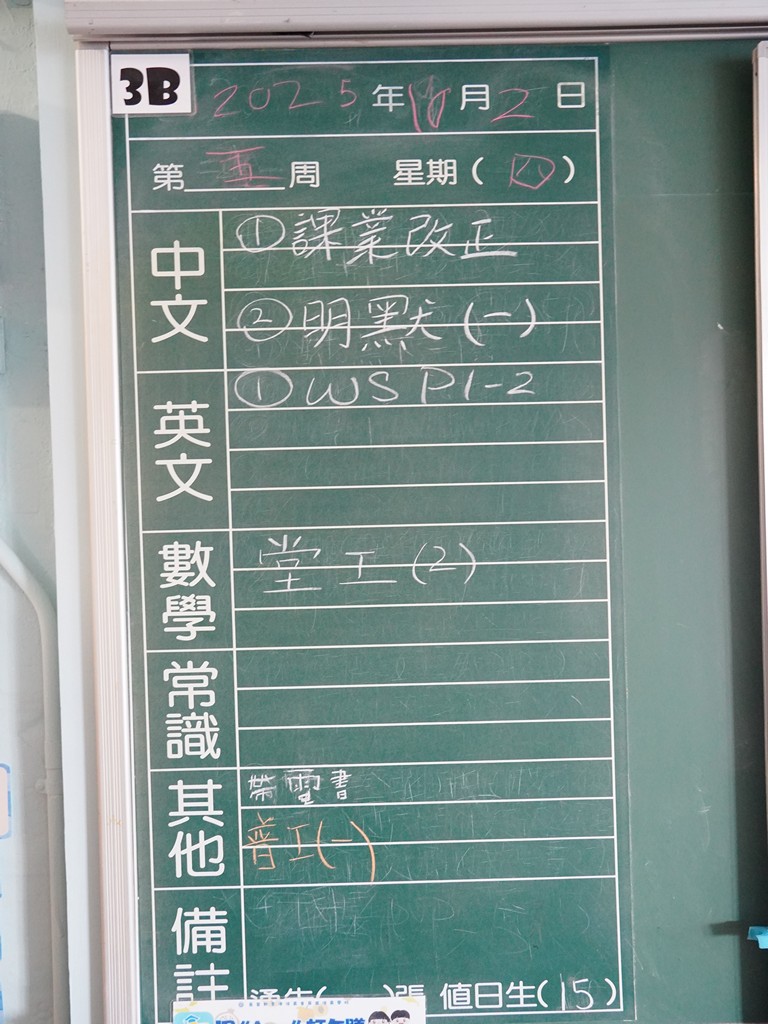 3B
2025年10月2日
第五周 星期(四)
中文
①課業改正
②明默(一)
英文
①WS P.1-2
數學
堂工(2)
常識
其他
帶電書
普工(一)
備註
通告( )張 值日生(15)